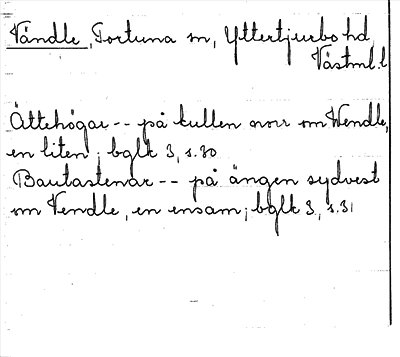 Vändle, Tortuna sn, Yttertjurbo hd,
Västml.l
Ättehögar -- på kullen norr om Wendle,
en liten; bglk 3, s.30
Bautastenar -- på ängen sydvest
om Vendle, en ensam; bglk 3, s.31